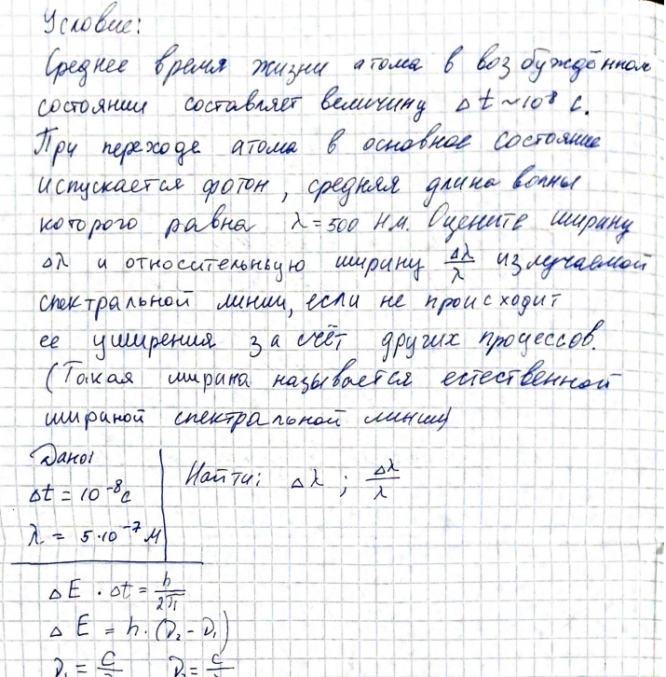 Условие:
Среднее время жизни атома в возбуждённом
состоянии составляет величину Δt~10⁸ с.
При переходе атома в основное состояние
испускается фотон, средняя длина волны
которого равна λ=500 нм. Оцените ширину
Δλ и относительную ширину Δλ/λ излучаемой
спектральной линии, если не происходит
ее уширения за счёт других процессов.
(Такая ширина называется естественной
шириной спектральной линии)
Дано:
Найти: Δλ ; Δλ/λ
Δt = 10⁻⁸ с
λ = 5·10⁻⁷ м
ΔE · Δt = h/2π
ΔE = h·(ν₂ - ν₁)
ν₁ = c/ ν₂ = c/